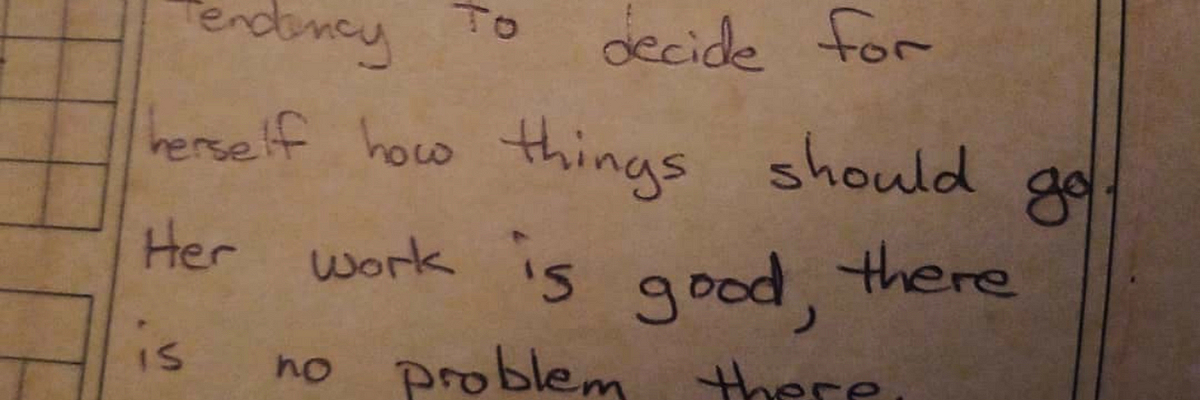 Tendency to decide for
herself how things should go.
Her work is good, there
is no problem there.